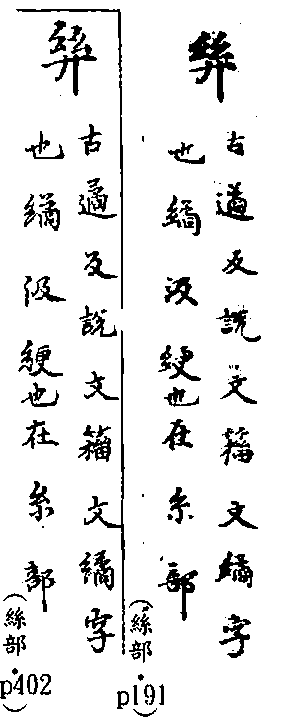 古遹反說文籀文繘字
也繘汲綆也在糸部
(絲部·p191)
古遹反說文籀文繘字
也繘汲綆也在糸部
(絲部·p402)